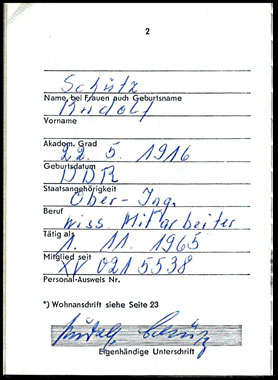 2
Schütz
Name, bei Frauen auch Geburtsname
Rudolf
Vorname
Akadem. Grad
22. 5. 1916
Geburtsdatum
DDR
Staatsangehörigkeit
Ober-Ing.
Beruf
wiss. Mitarbeiter
Tätig als
1. 11. 1965
Mitglied seit
XV 0215538
Personal-Ausweis Nr.
*) Wohnanschrift siehe Seite 23
Rudolf Schütz
Eigenhändige Unterschrift